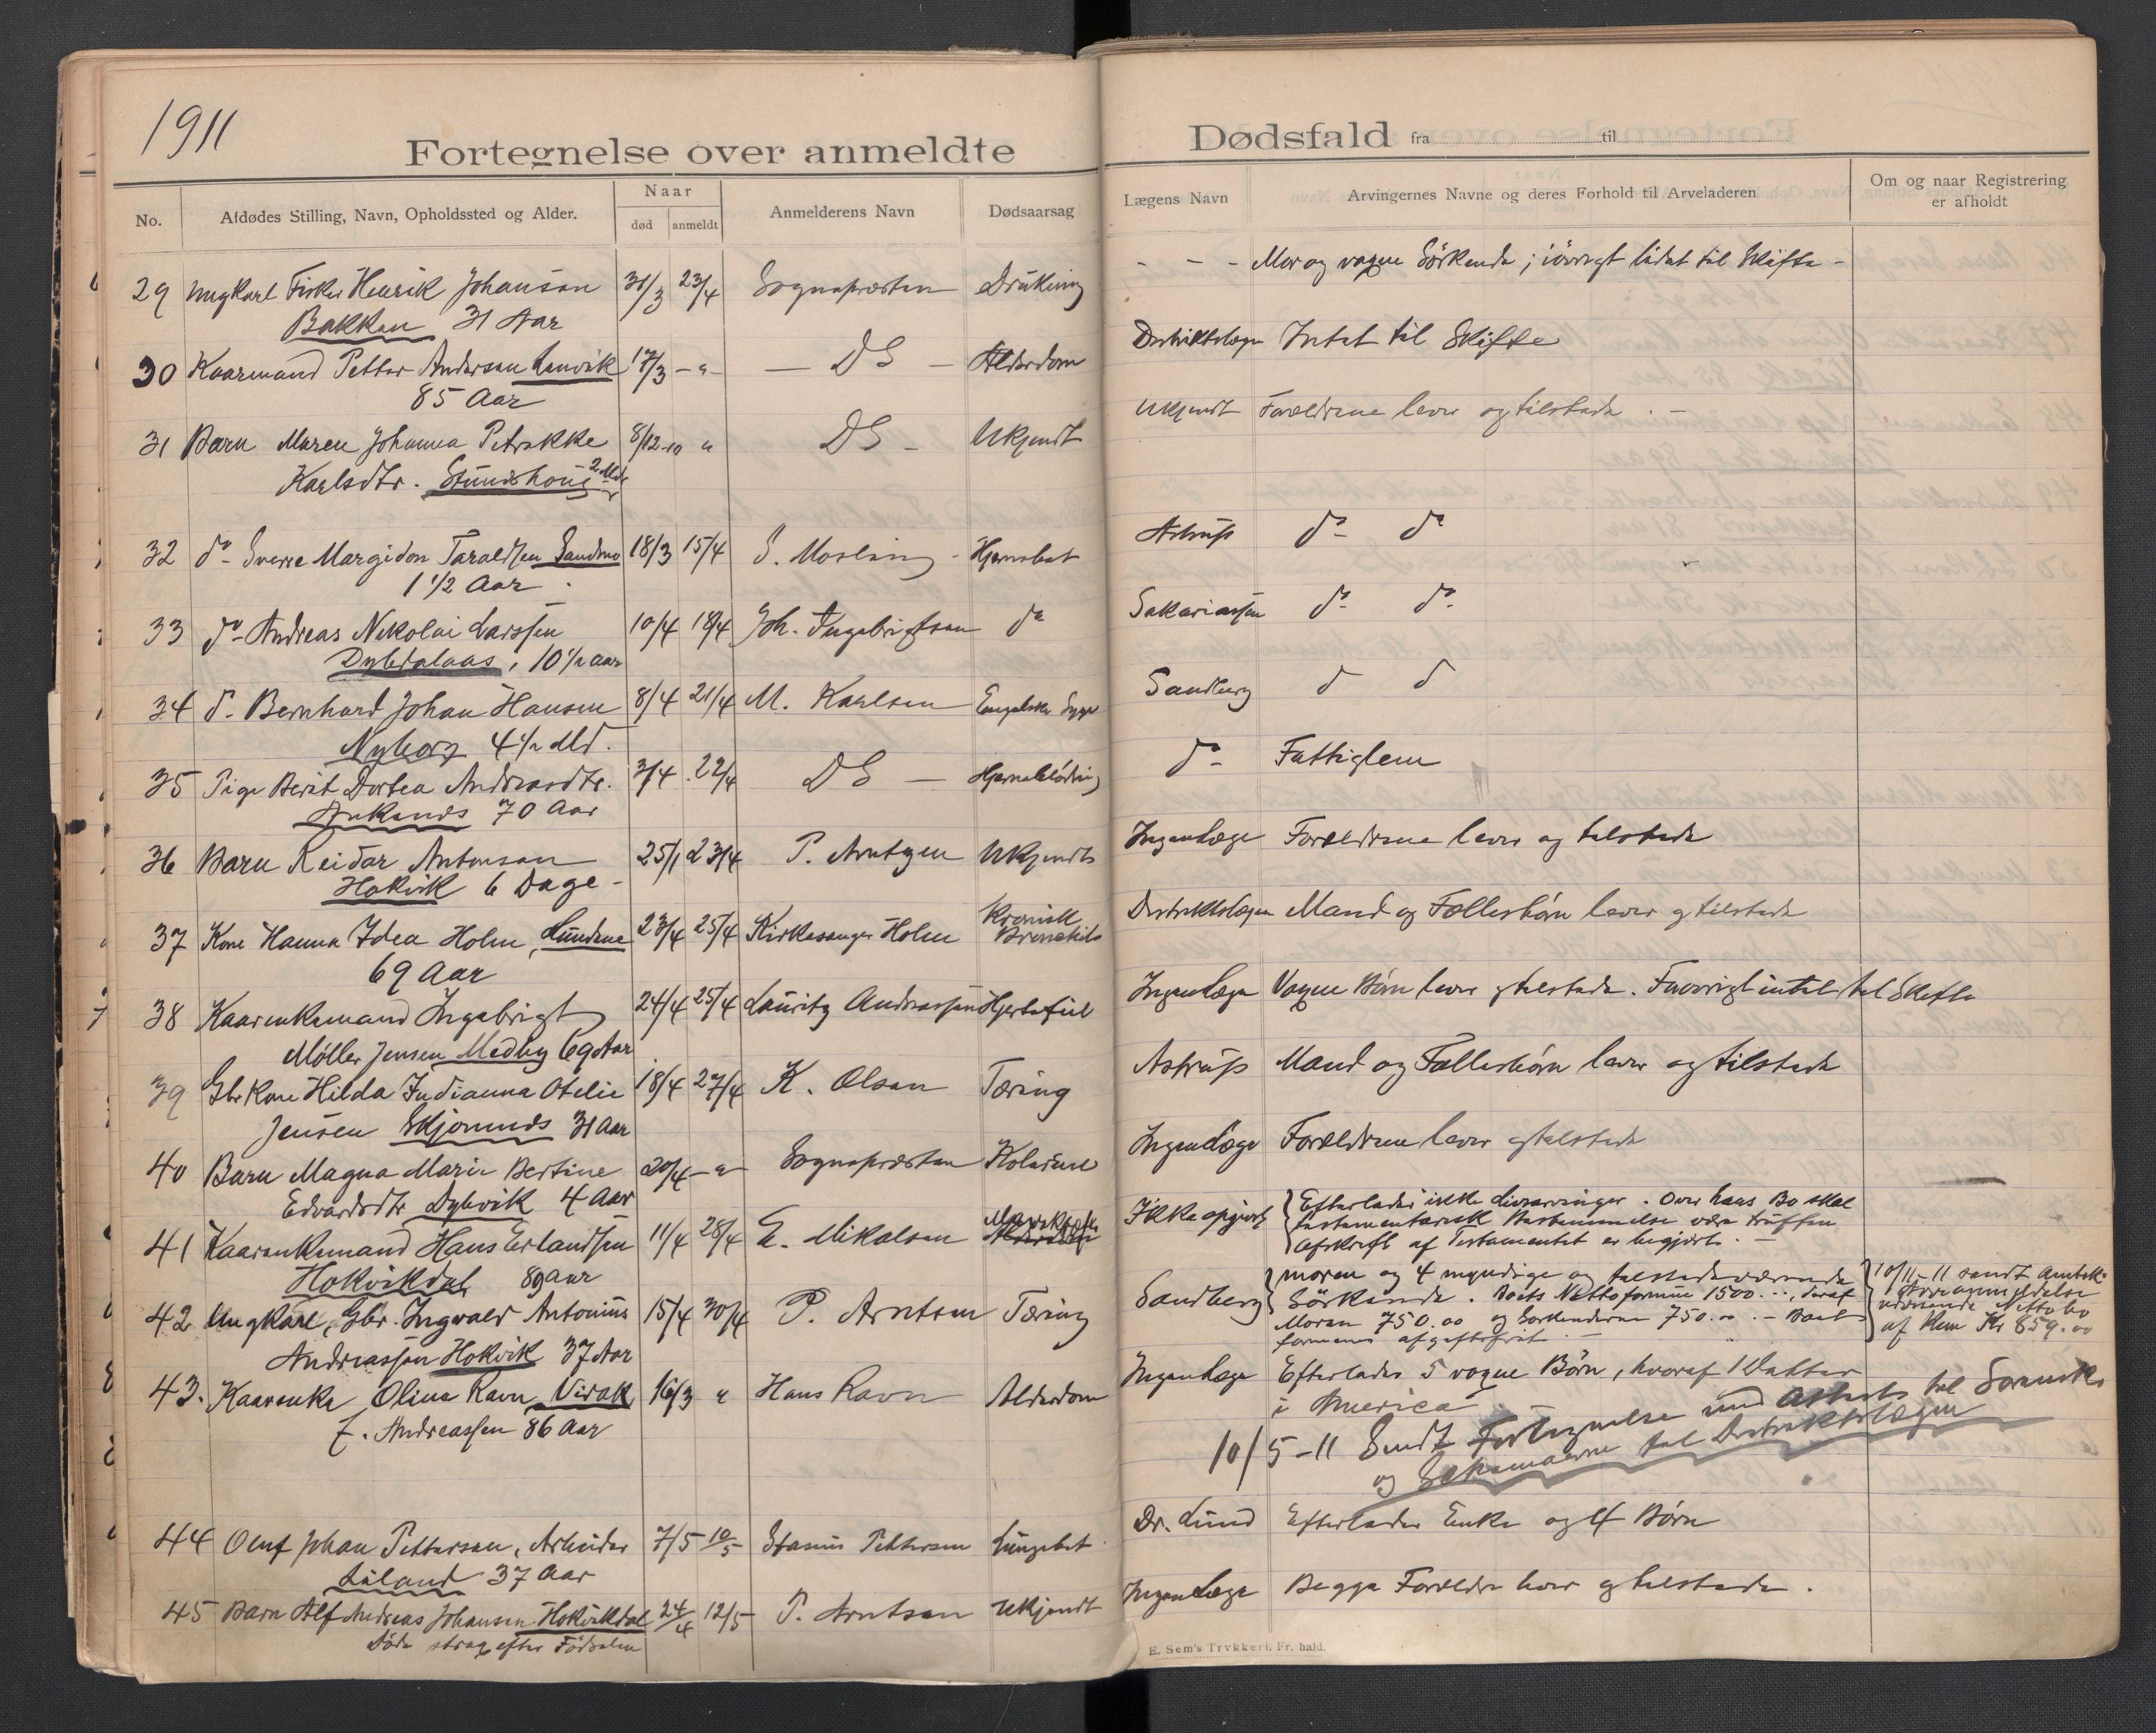 1911
Fortegnelse over anmeldte
No.
Afdødes Stilling, Navn, Opholdssted og Alder.
Naar
død
anmeldt
Anmelderens Navn
Dødsaarsag
29 Ungkarl Fisker Henrik Johansen 31/3 23/4 Sognepresten Drukning
Bakken 31 Aar
30 Kaarmand Petter Andersen Lenvik 17/3 - " - - DS - Alderdom
85 Aar
31 Barn Maren Johanna Petrikke 8/12-10 " DS - Ukjendt
Karlsdtr. 2 Mdr
32 do - Sverre Margidon Taraldsen Sandmo 18/3 15/4 S. Mosling - Hjernebet
1 1/2 Aar
33 do - Andreas Nikolai Larssen 10/4 18/4 Joh. Ingebrigtsen do
10 1/2 aar
34 do - Bernhard Johan Hansen 8/4 21/4 M. Karlsen Engelske Syge
Nyborg 4 1/2 Md.
35 Pige Berit Dortea Andreasdtr. 3/4 22/4 DS - Hjerneblødning
Ankenes 70 Aar
36 Barn Reidar Antonsen 25/1 23/4 P. Arntzen Ukjendt
Hokvik 6 Dage -
37 Kone Hanna Idea Holm, Lundene 23/4 25/4 Kirkesanger Holm Kronisk Bronchit
69 Aar
38 Kaarenkemand Ingebrigt 24/4 25/4 Lauritz Andreassen Hjertefeil
Møller Jensen Medby 69 Aar
39 Gbr Kone Hilda Indianna Otelie 18/4 27/4 K. Olsen Tæring
Jensen Skjomnes 31 Aar
40 Barn Magna Marie Bertine 20/4 - " - Sognepresten Kolerine
Edvardsdtr Dybvik 4 Aar
41 Kaarenkemand Hans Erlandsen 11/4 28/4 E. Mikalsen
Hokvikdal 89 Aar
42 Ungkarl, Gbr. Ingvald Antonius 15/4 30/4 P. Arntsen Tæring
Andreassen Hokvik 37 Aar
43. Kaarenke Olina Ravn, Virak 16/3 " Hans Ravn Alderdom
f. Andreassen 86 Aar
44 Oluf Johan Pettersen, Arbeider 7/5 10/5 Stasius Pettersen Lungebet
Liland 37 Aar
45 Barn Alf Andreas Johansen Hokvikdal 24/4 12/5 P. Arntsen Ukjendt
Døde strax efter Fødselen
Dødsfald fra til
Lægens Navn
Arvingernes Navne og deres Forhold til Arveladeren
Om og naar Registrering
er afholdt
- - - Mor og voxne Sörkende; iövrigt lidet til Skifte -
Distriktslægen Intet til Skifte
Ukjendt Forældrene lever og tilstede . -
Astrup do - do
Sakariassen do - do -
Sandberg do do
do - Fattiglem
Ingen Læge Forældrene lever og tilstede
Distriktslægen Mand og Fællesbörn lever og tilstede
Ingen Læge Voxne Börn lever og tilstede. Forövrigt intet til Skifte
Astrup Mand og Fællesbörn lever og tilstede
Ingen Læge Forældrene lever og tilstede
Ikke opgivet Efterlader ikke Livsarvinger. Over hans Bo skal
testamentarisk Bestemmelse være truffen
Afskrift af Testamentet er begjært. -
Sandberg moren og 4 myndige og tilstedeværende
Sörkende. Boets Nettoformue 1500..., deraf
Moren 750.00 og Sörkenderne 750.00 - Boets
formue afgiftsfrit
10/11-11 sendt Amtsk.
Arveanmeldelse
vedrørende Nettobo
af Kun Kr 859.00
Ingen Læge Efterlader 5 voxne Börn, hvoraf 1 Datter
i America
10/5-11 Sendt Fortegnelse med Attests til Sorensk.
og Skemaerne til Distriktslægen
Dr. Lund Efterlader Enke og 4 Börn
Ingen Læge Begge Forældre lever og tilstede.
E. Sem's Trykkeri. Fr.hald.